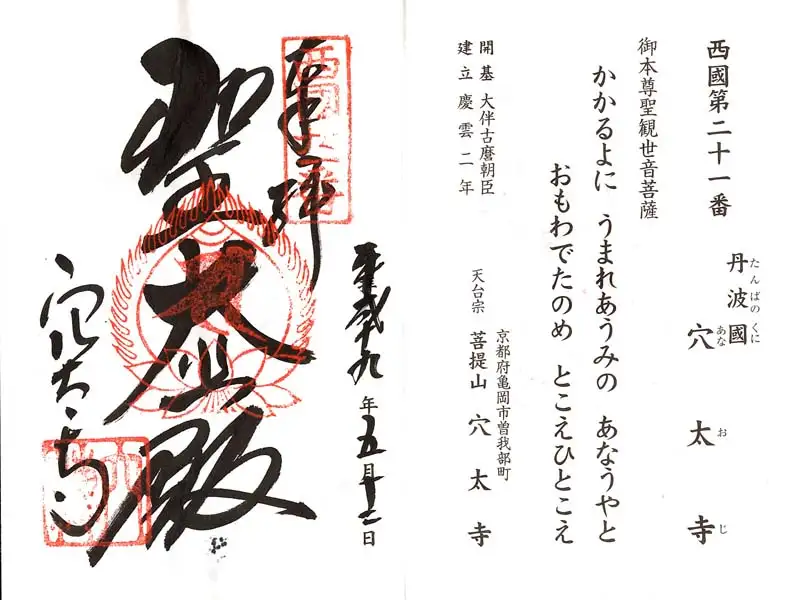 西國第二十一番
丹波國 穴太寺
たんばのくに あなおじ
御本尊聖観世音菩薩
かかるよに うまれあうみの あなうやと
おもわでたのめ とこえひとこえ
開基 大伴古麿朝臣
建立慶雲二年
京都府亀岡市曽我部町
天台宗 菩提山 穴太寺
奉拝
西国廿一番
平成十九年五月十二日
聖大悲殿
穴太寺